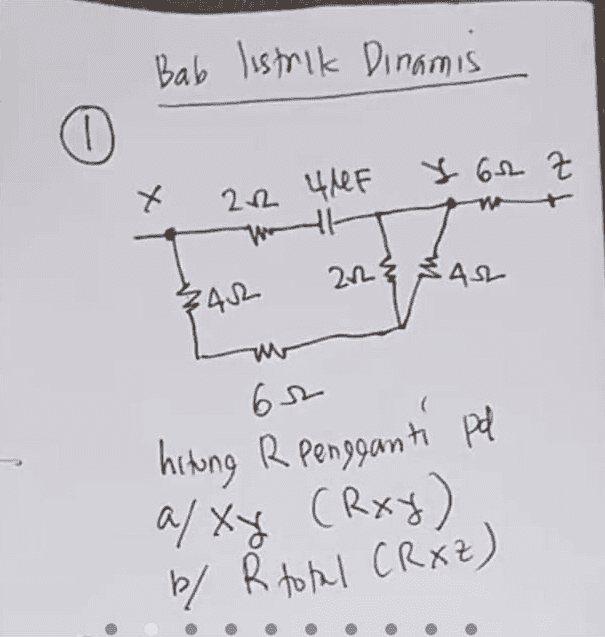 Bab listrik Dinamis
1
x 2Ω 4μF y 6Ω z
4Ω 2Ω 4Ω
6Ω
hitung R pengganti pd
a/ xy (Rxy)
b/ R total (Rxz)